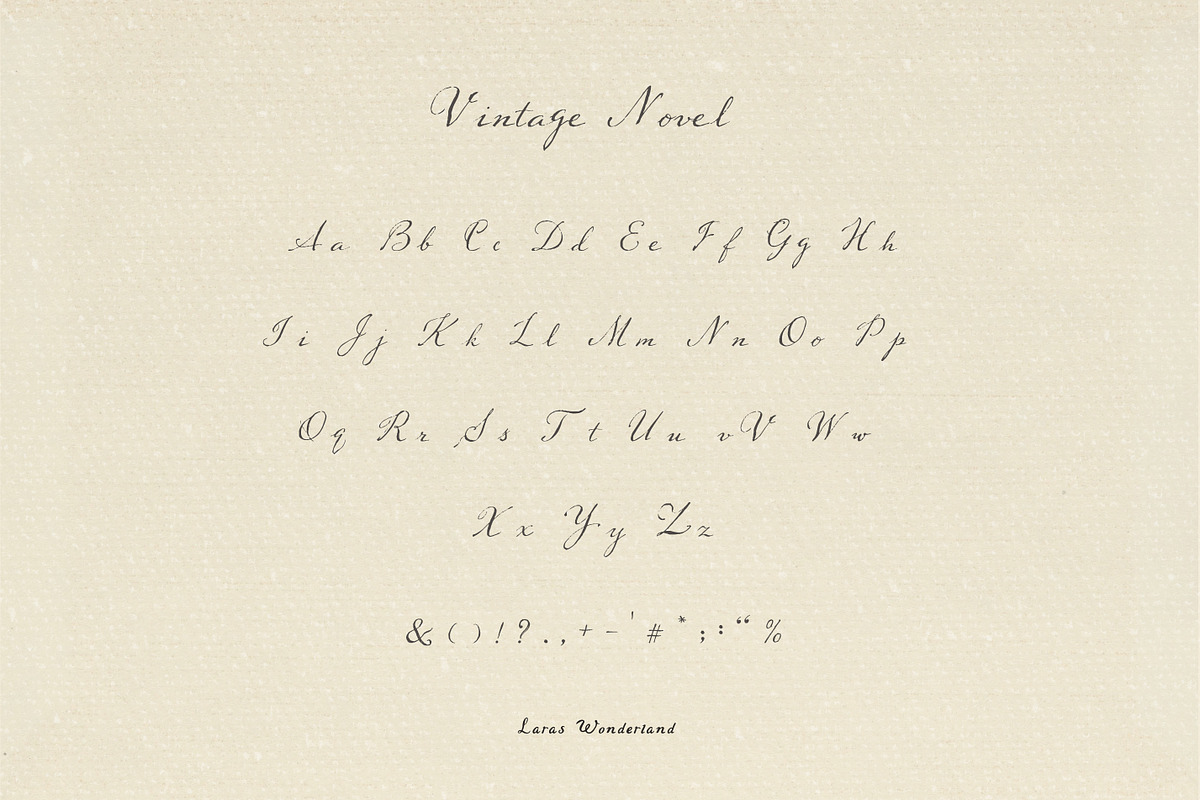 Vintage Novel
Aa Bb Cc Dd Ee Ff Gg Hh
Ii Jj Kk Ll Mm Nn Oo Pp
Qq Rr Ss Tt Uu vV Ww
Xx Yy Zz
& ( ) ! ? . , + - ' # * ; : “ %
Laras Wonderland